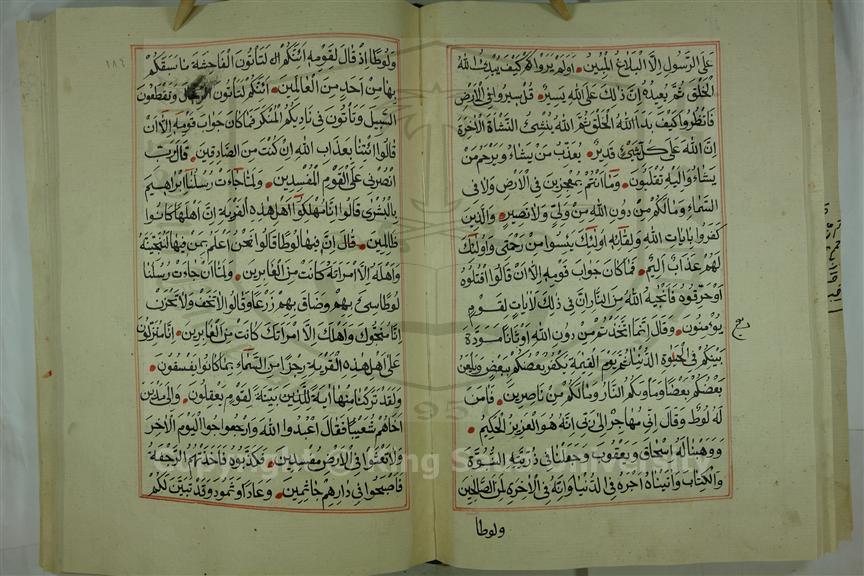 على الرسول الا البلاغ المبين اولم يروا كيف يبدئ الله
الخلق ثم يعيده ان ذلك على الله يسير قل سيروا فى الارض
فانظروا كيف بدأ الله الخلق ثم الله ينشئ النشأة الاخرة
ان الله على كل شئ قدير يعذب من يشاء ويرحم من
يشاء واليه تقلبون وما انتم بمعجزين فى الارض ولا فى
السماء ومالكم من دون الله من ولى ولا نصير والذين
كفروا بايات الله ولقائه اولئك يئسوا من رحمتى واولئك
لهم عذاب اليم فما كان جواب قومه الا ان قالوا اقتلوه
او حرقوه فانجيه الله من النار ان فى ذلك لايات لقوم
يؤمنون وقال انما اتخذتم من دون الله اوثانا مودة
بينكم فى الحيوة الدنيا ثم يوم القيمة يكفر بعضكم ببعض ويلعن
بعضكم بعضا وماويكم النار ومالكم من ناصرين فامن
له لوط وقال انى مهاجر الى ربى انه هو العزيز الحكيم
ووهبنا له اسحاق ويعقوب وجعلنا فى ذريته النبوة
والكتاب واتيناه اجره فى الدنيا وانه فى الاخرة لمن الصالحين
ولوطا
ولوطا اذ قال لقومه ائنكم لتأتون الفاحشة ما سبقكم
بها من احد من العالمين ائنكم لتأتون الرجال وتقطعون
السبيل وتأتون فى ناديكم المنكر فما كان جواب قومه الا ان
قالوا ائتنا بعذاب الله ان كنت من الصادقين قال رب
انصرنى على القوم المفسدين ولما جاءت رسلنا ابراهيم
بالبشرى قالوا انا مهلكوا اهل هذه القرية ان اهلها كانوا
ظالمين قال ان فيها لوطا قالوا نحن اعلم بمن فيها لننجينه
واهله الا امرأته كانت من الغابرين ولما ان جاءت رسلنا
لوطا سئ بهم وضاق بهم ذرعا وقالوا لا تخف ولا تحزن
انا منجوك واهلك الا امرأتك كانت من الغابرين انا منزلون
على اهل هذه القرية رجزا من السماء بما كانوا يفسقون
ولقد تركنا منها اية بينة لقوم يعقلون والى مدين
اخاهم شعيبا فقال اعبدوا الله وارجوا اليوم الاخر
ولا تعثوا فى الارض مفسدين فكذبوه فاخذتهم الرجفة
فاصبحوا فى دارهم جاثمين وعادا وثمود وقد تبين لكم
١٨٦